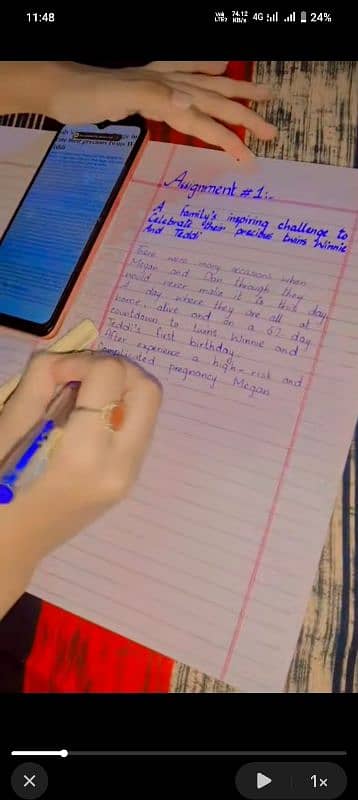 11:48
74.12 KB/s 4G 24%
Assignment # 1:-
A family's inspiring challenge to
Celebrate their precious twins Winnie
And Teddi
There were many occasions when
Megan and Dan through they
would never make it to this day
A day where they are all at
home, alive and on a 67 day
countdown to twins Winnie and
Teddi's first birthday.
After experience a high-risk and
complicated pregnancy Megan
1x